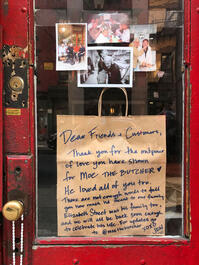 Dear Friends & Customers,
Thank you for the outpour
of love you have shown
for Moe THE BUTCHER
He loved all of you too.
There are not enough words to tell
you how much he meant to our family.
Elizabeth Street was his family too
and we will be back soon enough
to celebrate his life. For updates go
to